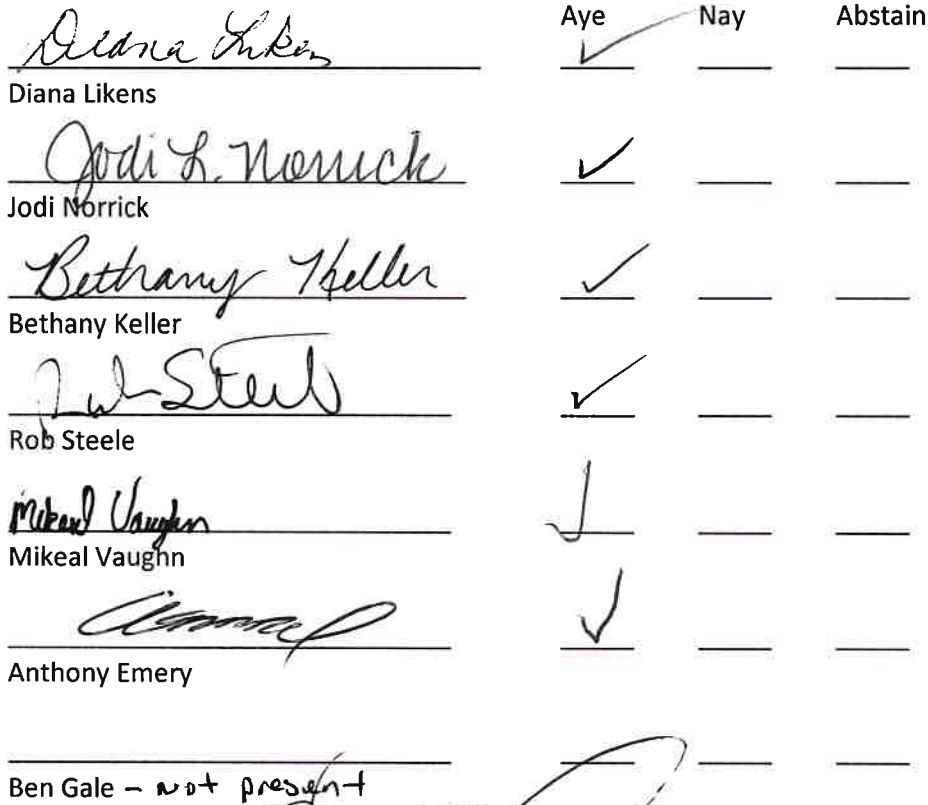 Aye Nay Abstain
Diana Likens ✓
Diana Likens
Jodi L. Norrick ✓
Jodi Norrick
Bethany Keller ✓
Bethany Keller
Steele ✓
Rob Steele
Mikeal Vaughn ✓
Mikeal Vaughn
✓
Anthony Emery
Ben Gale - not present